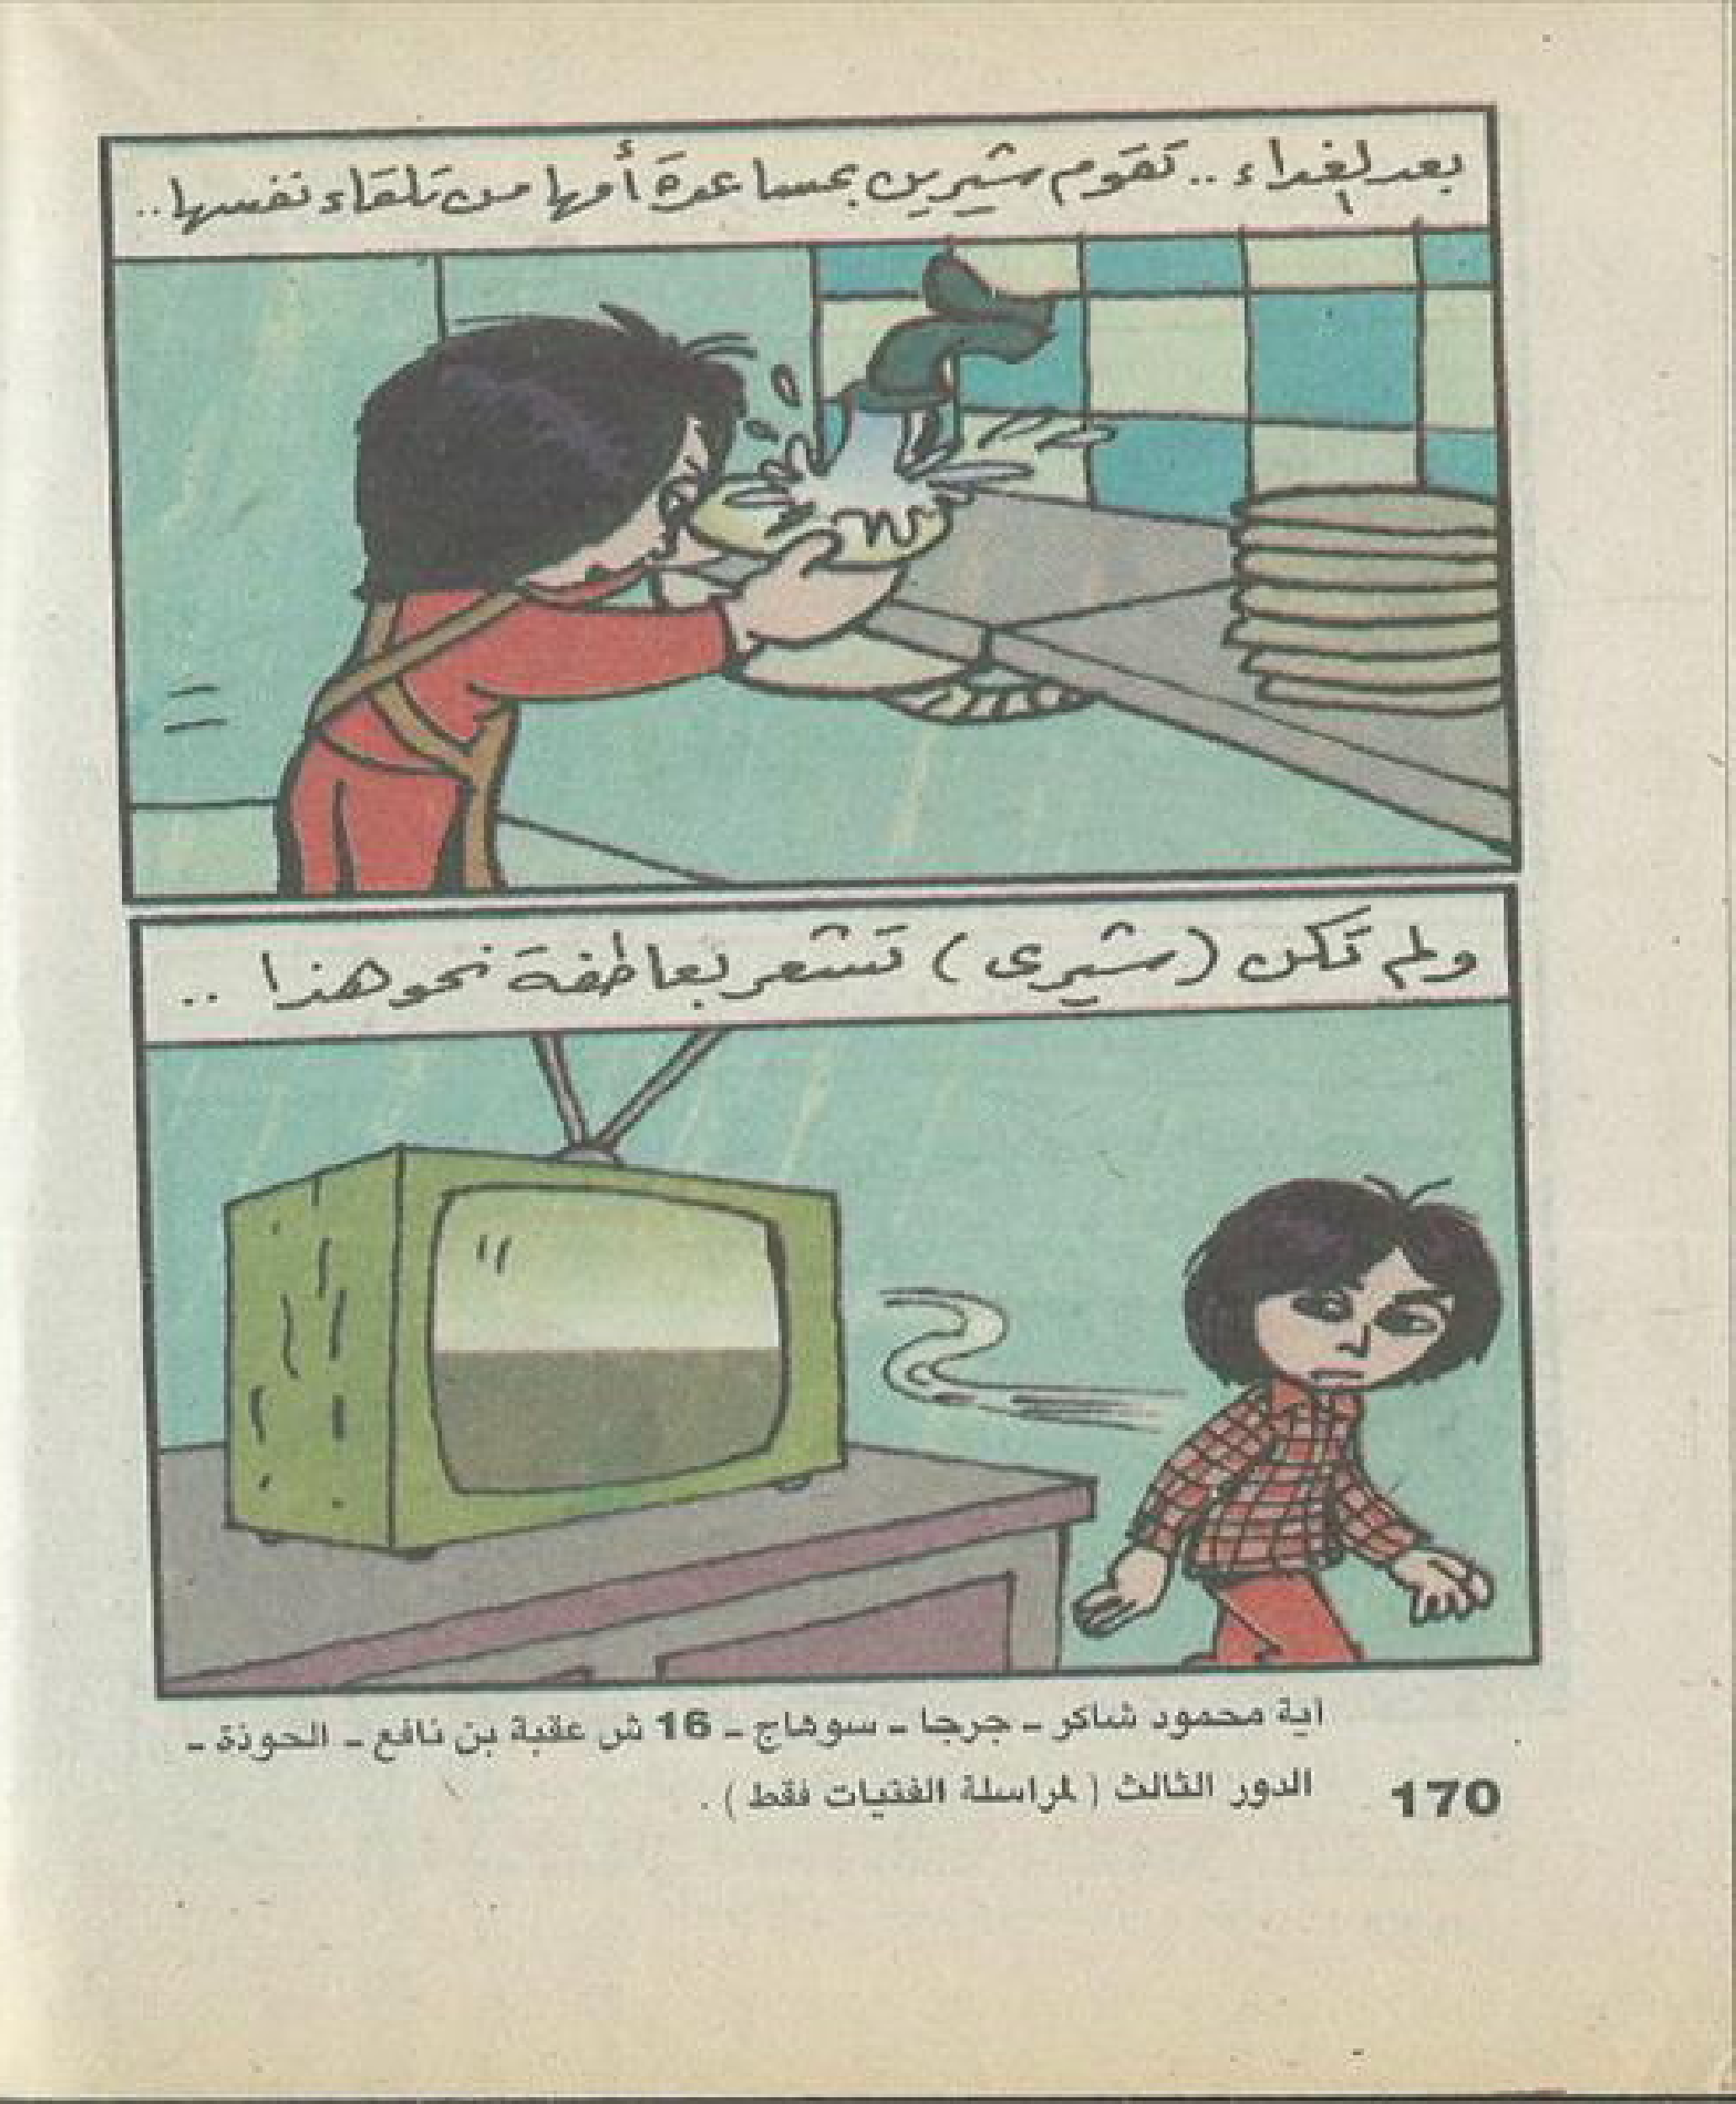 بعد الغداء .. تقوم شيرين بمساعدة أمها من تلقاء نفسها ..
ولم تكن (شيرى) تشعر بعاطفة نحو هذا ..
آية محمود شاكر - جرجا - سوهاج - 16 ش عقبة بن نافع - الحوذة -
الدور الثالث ( لمراسلة الفتيات فقط ) .
170